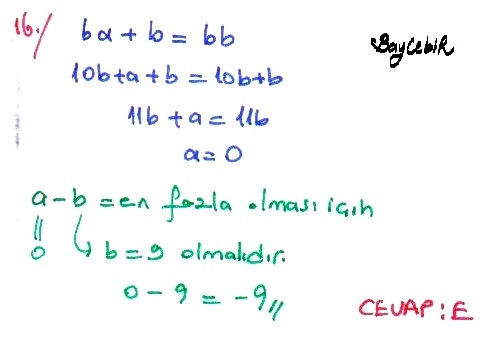 16./ ba + b = bb
BayCebiR
10b+a+b = 10b+b
11b + a = 11b
a = 0
a - b = en fazla olması için
= 0 ↳ b = 9 olmalıdır.
0 - 9 = -9//
CEVAP : E